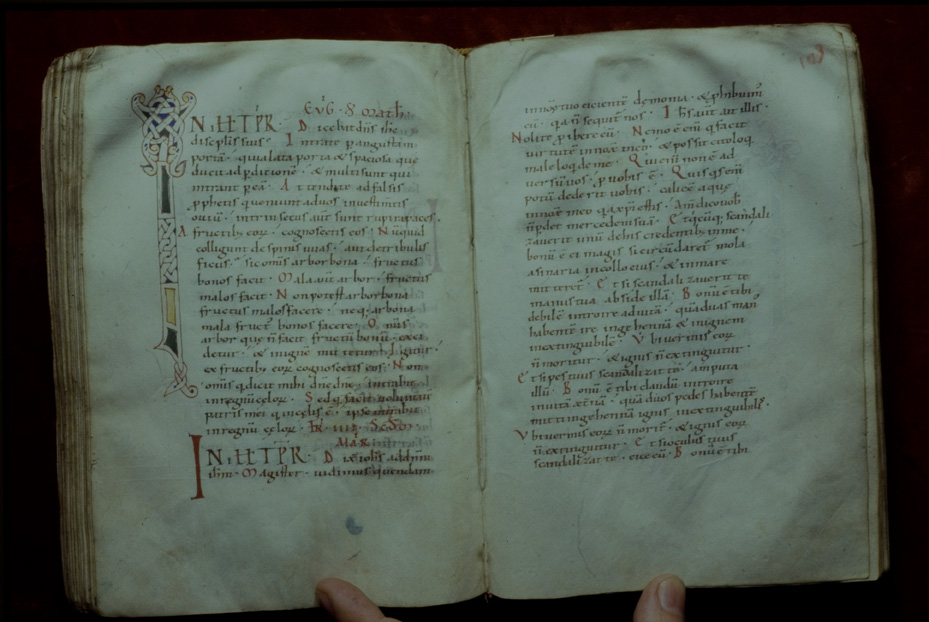 Euḡ. s̄. Math.
IN ILL TP̄R. Dicebat dn̄s ih̄c
discipłis suis. Intrate p angustam
portā. quia lata porta & spaciosa que
ducit ad pditionē. & multi sunt qui
intrant p eā. Attendite a falsis
pphetis qui veniunt ad vos in vestimentis
ouiū. intrinsecus aūt sunt lupi rapaces.
A fructib; eoꝝ cognoscetis eos. Nunquid
colligunt de spinis uuas. aut de tribulis
ficus. sic om̄is arbor bona fructus
bonos facit. Mala aūt arbor fructus
malos facit. Non potest arbor bona
fructus malos facere. neq; arbor
mala fruct᷒ bonos facere. Om̄is
arbor que n̄ facit fructū bonū. exci
detur. & in ignē mittetur. Igitur
ex fructib; eoꝝ cognoscetis eos. Non
om̄is q dicit mihi dn̄e dn̄e. intrabit
in regnū celoꝝ. Sed q facit uoluntatē
patris mei q in celis ē. ipse intrabit
in regnū celoꝝ. sēdm
Mar̄
IN ILL TP̄R. Dix ioh̄s ad dn̄m
ih̄m. Magister. uidimus quendam
in noīe tuo eicientē demonia. & phibuim᷒
eū. qa n̄ sequit᷒ nos. Ih̄s aūt ait illis.
Nolite phibere eū. Nemo ē eni q facit
uirtutē in noīe meo. & possit cito loq
male loq de me. Qui eni non ē ad
uersū uos. p uobis ē. Quisqs eni
potū dederit uobis calicē aque
in noīe meo qa xp̄i estis. Am̄ dico uob
n̄ pdet mercedem suā. Et qcūq; scandali
zauerit unū de his credentib; in me.
bonū ē ei magis si circūdaret᷒ mola
asinaria in collo eius. & in mare
mitteret᷒. Et si scandalizauerit te
manus tua. abscide illā. Bonū ē tibi
debilē introire ad uitā. quā duas man᷒
habentē ire in gehennā & in ignem
inextinguibilē. Vbi uermis eoꝝ
n̄ moritur. & ignis n̄ extinguitur.
Et si pes tuus scandalizat te. amputa
illū. Bonū ē tibi claudū introire
in uitā etnā. quā duos pedes habentē
mitti in gehennā ignis inextinguibilis.
Vbi uermis eoꝝ n̄ morit᷒. & ignis eoꝝ
n̄ extinguitur. Et si oculus tuus
scandalizat te. eice eū. Bonū ē tibi